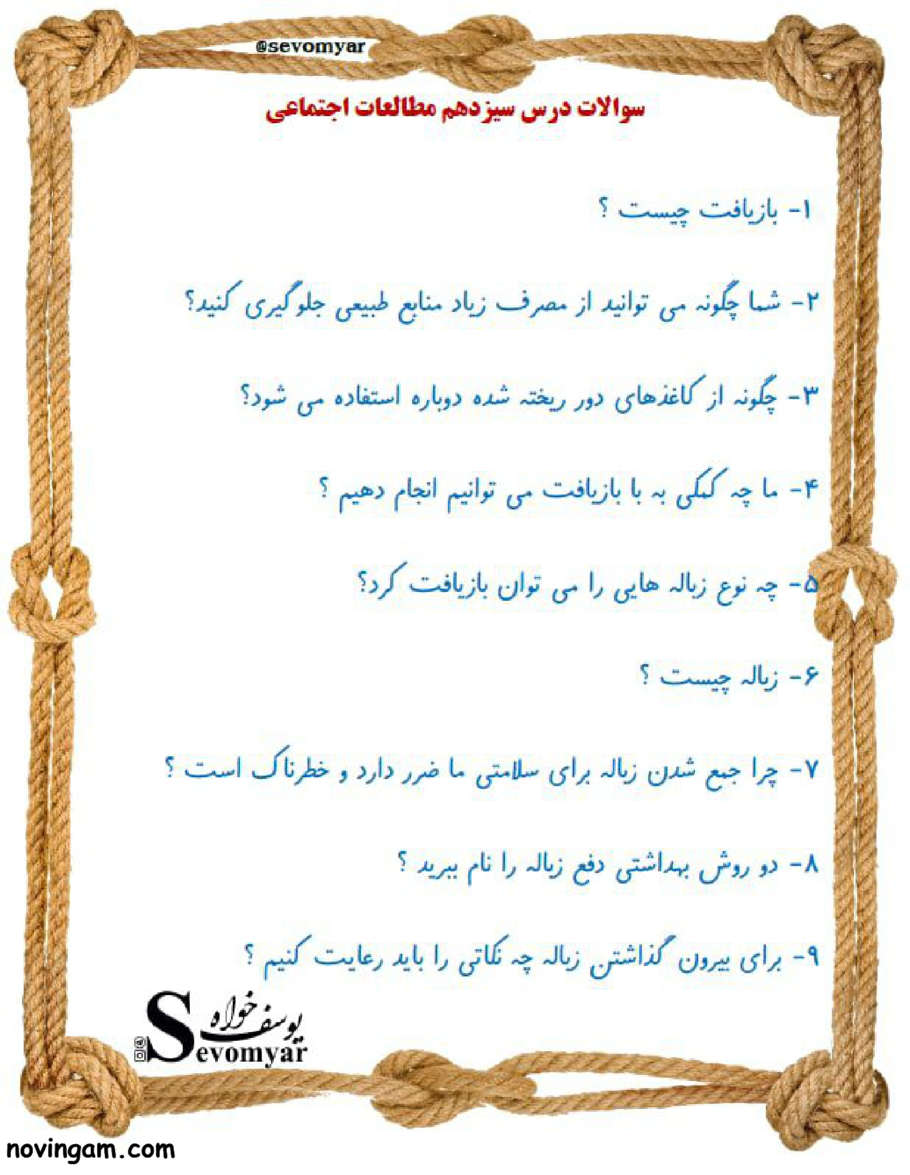 @sevomyar
سوالات درس سیزدهم مطالعات اجتماعی
۱- بازیافت چیست ؟
۲- شما چگونه می توانید از مصرف زیاد منابع طبیعی جلوگیری کنید؟
۳- چگونه از کاغذهای دور ریخته شده دوباره استفاده می شود؟
۴- ما چه کمکی به با بازیافت می توانیم انجام دهیم ؟
۵- چه نوع زباله هایی را می توان بازیافت کرد؟
۶- زباله چیست ؟
۷- چرا جمع شدن زباله برای سلامتی ما ضرر دارد و خطرناک است ؟
۸- دو روش بهداشتی دفع زباله را نام ببرید ؟
۹- برای بیرون گذاشتن زباله چه نکاتی را باید رعایت کنیم ؟
یوسف خواه
Sevomyar
novingam.com